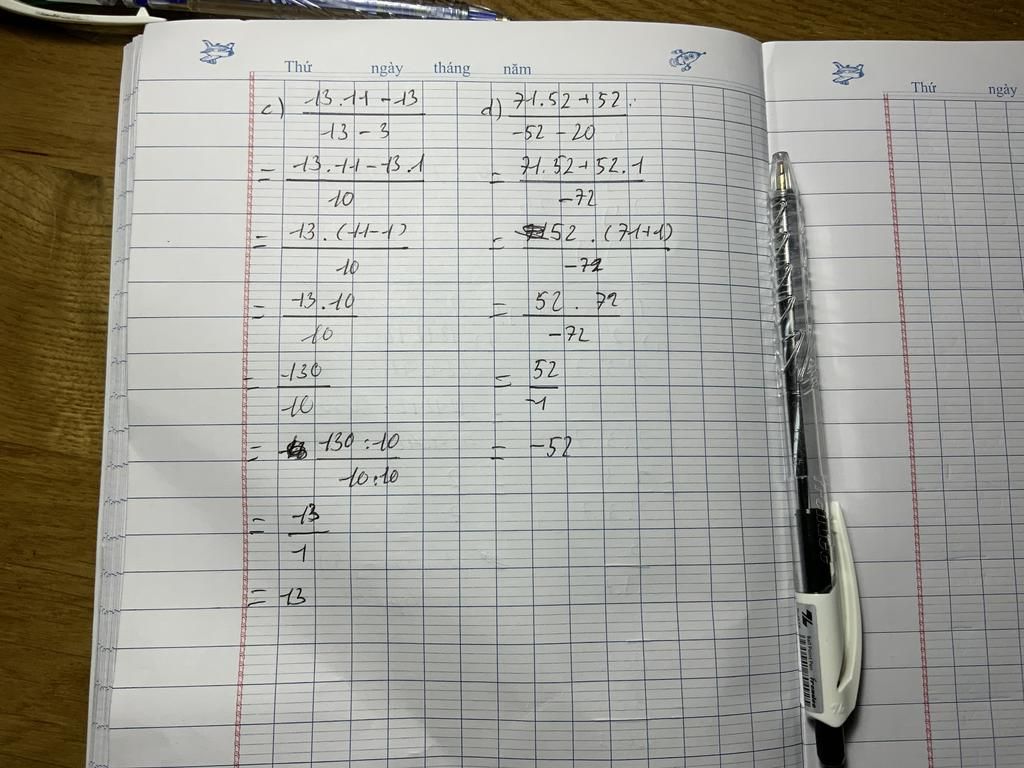 Thứ ngày tháng năm
c) 13.11-13 / 13-3
= 13.11-13.1 / 10
= 13.(11-1) / 10
= 13.10 / 10
= 130 / 10
= 130:10 / 10:10
= 13 / 1
= 13
d) 71.52+52 / -52-20
= 71.52+52.1 / -72
= 52.(71+1) / -72
= 52.72 / -72
= 52 / -1
= -52
Thứ ngày